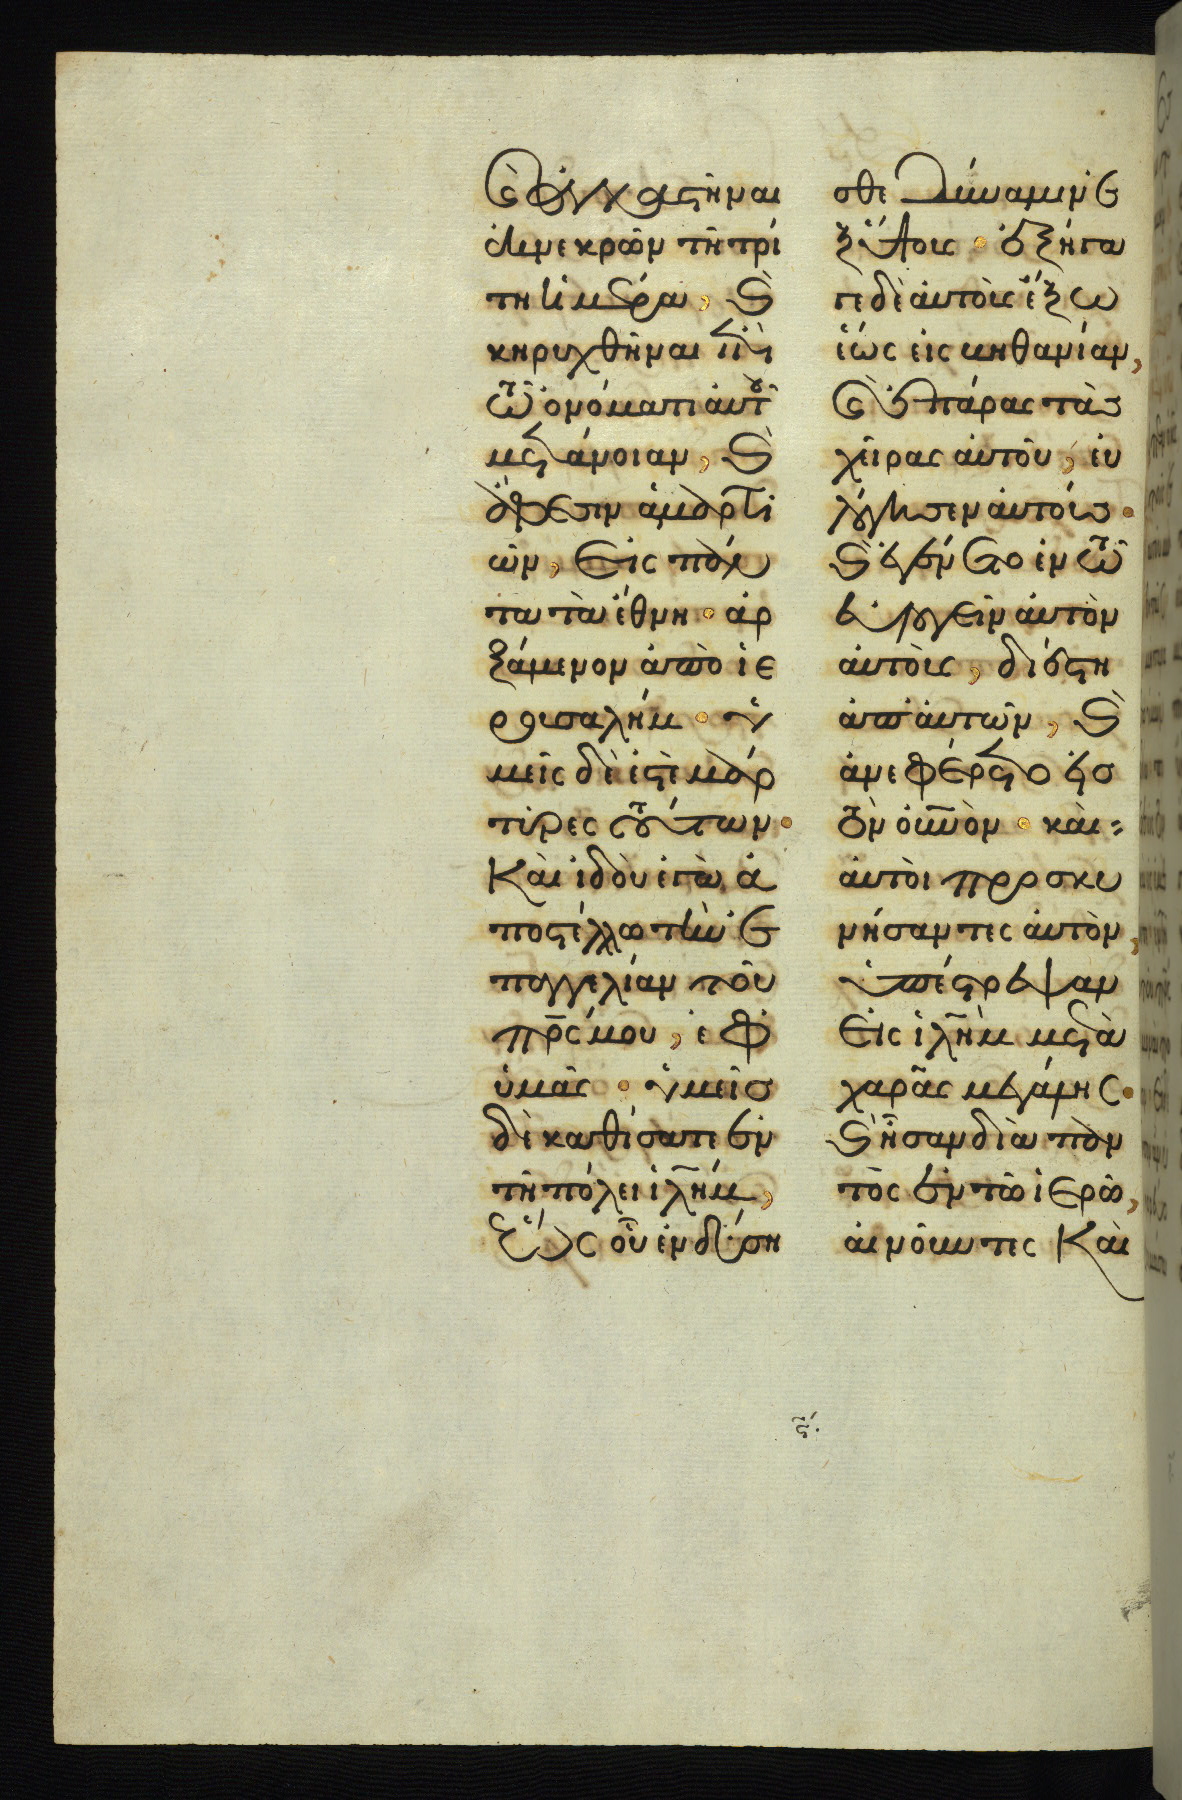 καὶ ἀναστῆναι
ἐκ νεκρῶν τῆ τρί
τη ἡμέρα, καὶ
κηρυχθῆναι ἐπὶ
τῶ ὀνόματι αὐτοῦ
μετάνοιαν, καὶ
ἄφεσιν ἁμαρτι
ῶν, εἰς πάν
τα τὰ ἔθνη · ἀρ
ξάμενον ἀπὸ ἱε
ρουσαλήμ · ὑ
μεῖς δὲ ἐστὲ μάρ
τυρες τούτων ·
Καὶ ἰδοὺ ἐγὼ ἀ
ποστέλλω τὴν ἐ
παγγελίαν τοῦ
πρς μου, ἐφ
ὑμᾶς · ὑμεῖς
δὲ καθίσατε ἐν
τῆ πόλει ἰλημ,
ἕως οὗ ἐνδύση
σθε δύναμιν ἐ
ξ ὕψους · ἐξήγα
γε δὲ αὐτοὺς ἔξω
ἕως εἰς βηθανίαν,
καὶ ἐπάρας τὰς
χεῖρας αὐτοῦ, εὐ
λόγησεν αὐτούς ·
καὶ ἐγένετο ἐν τῶ
εὐλογεῖν αὐτὸν
αὐτοὺς, διέστη
ἀπ' αὐτῶν, καὶ
ἀνεφέρετο εἰς
τὸν οὐνὸν · καὶ
αὐτοὶ προσκυ
νήσαντες αὐτὸν,
ὑπέστρεψαν
εἰς ἰλημ μετὰ
χαρᾶς μεγάλης ·
καὶ ἦσαν διὰ παν
τὸς ἐν τῶ ἱερῶ,
αἰνοῦντες καὶ
ς΄.